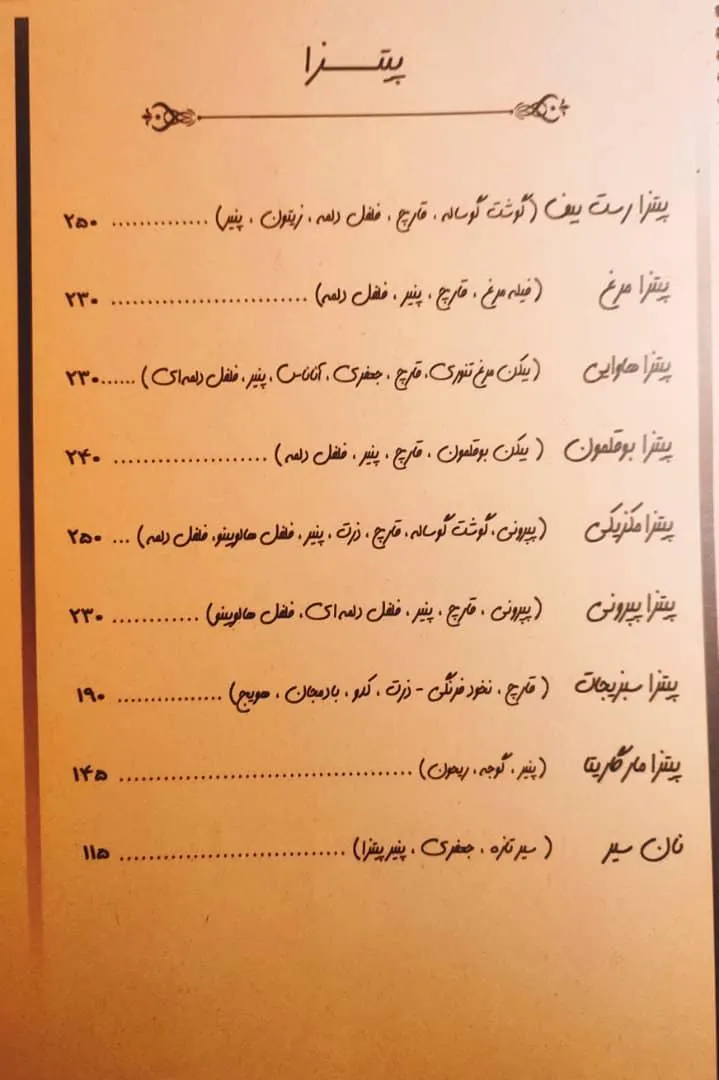 پیتزا
پیتزا رست بیف (گوشت گوساله ، قارچ ، فلفل دلمه ، زیتون ، پنیر) .............. ۲۵۰
پیتزا مرغ (فیله مرغ ، قارچ ، پنیر ، فلفل دلمه) .......................... ۲۳۰
پیتزا هاوایی (بیکن مرغ تنوری، قارچ ، جعفری ، آناناس ، پنیر ، فلفل دلمه‌ای) ......۲۳۰
پیتزا بوقلمون ( بیکن بوقلمون ، قارچ ، پنیر ، فلفل دلمه ) .................... ۲۴۰
پیتزا مکزیکی (پپرونی، گوشت گوساله، قارچ ، ذرت ، پنیر ، فلفل هالوپینو، فلفل دلمه) ... ۲۵۰
پیتزا پپرونی (پپرونی ، قارچ ، پنیر ، فلفل دلمه ای، فلفل هالوپینو) ............ ۲۳۰
پیتزا سبزیجات ( قارچ ، نخود فرنگی - ذرت ، کدو ، بادمجان ، هویج) ................ ۱۹۰
پیتزا مارگاریتا (پنیر ، گوجه ، ریحون) ....................................... ۱۴۵
نان سیر ( سیر تازه ، جعفری ، پنیر پیتزا) .............................. ۱۱۵